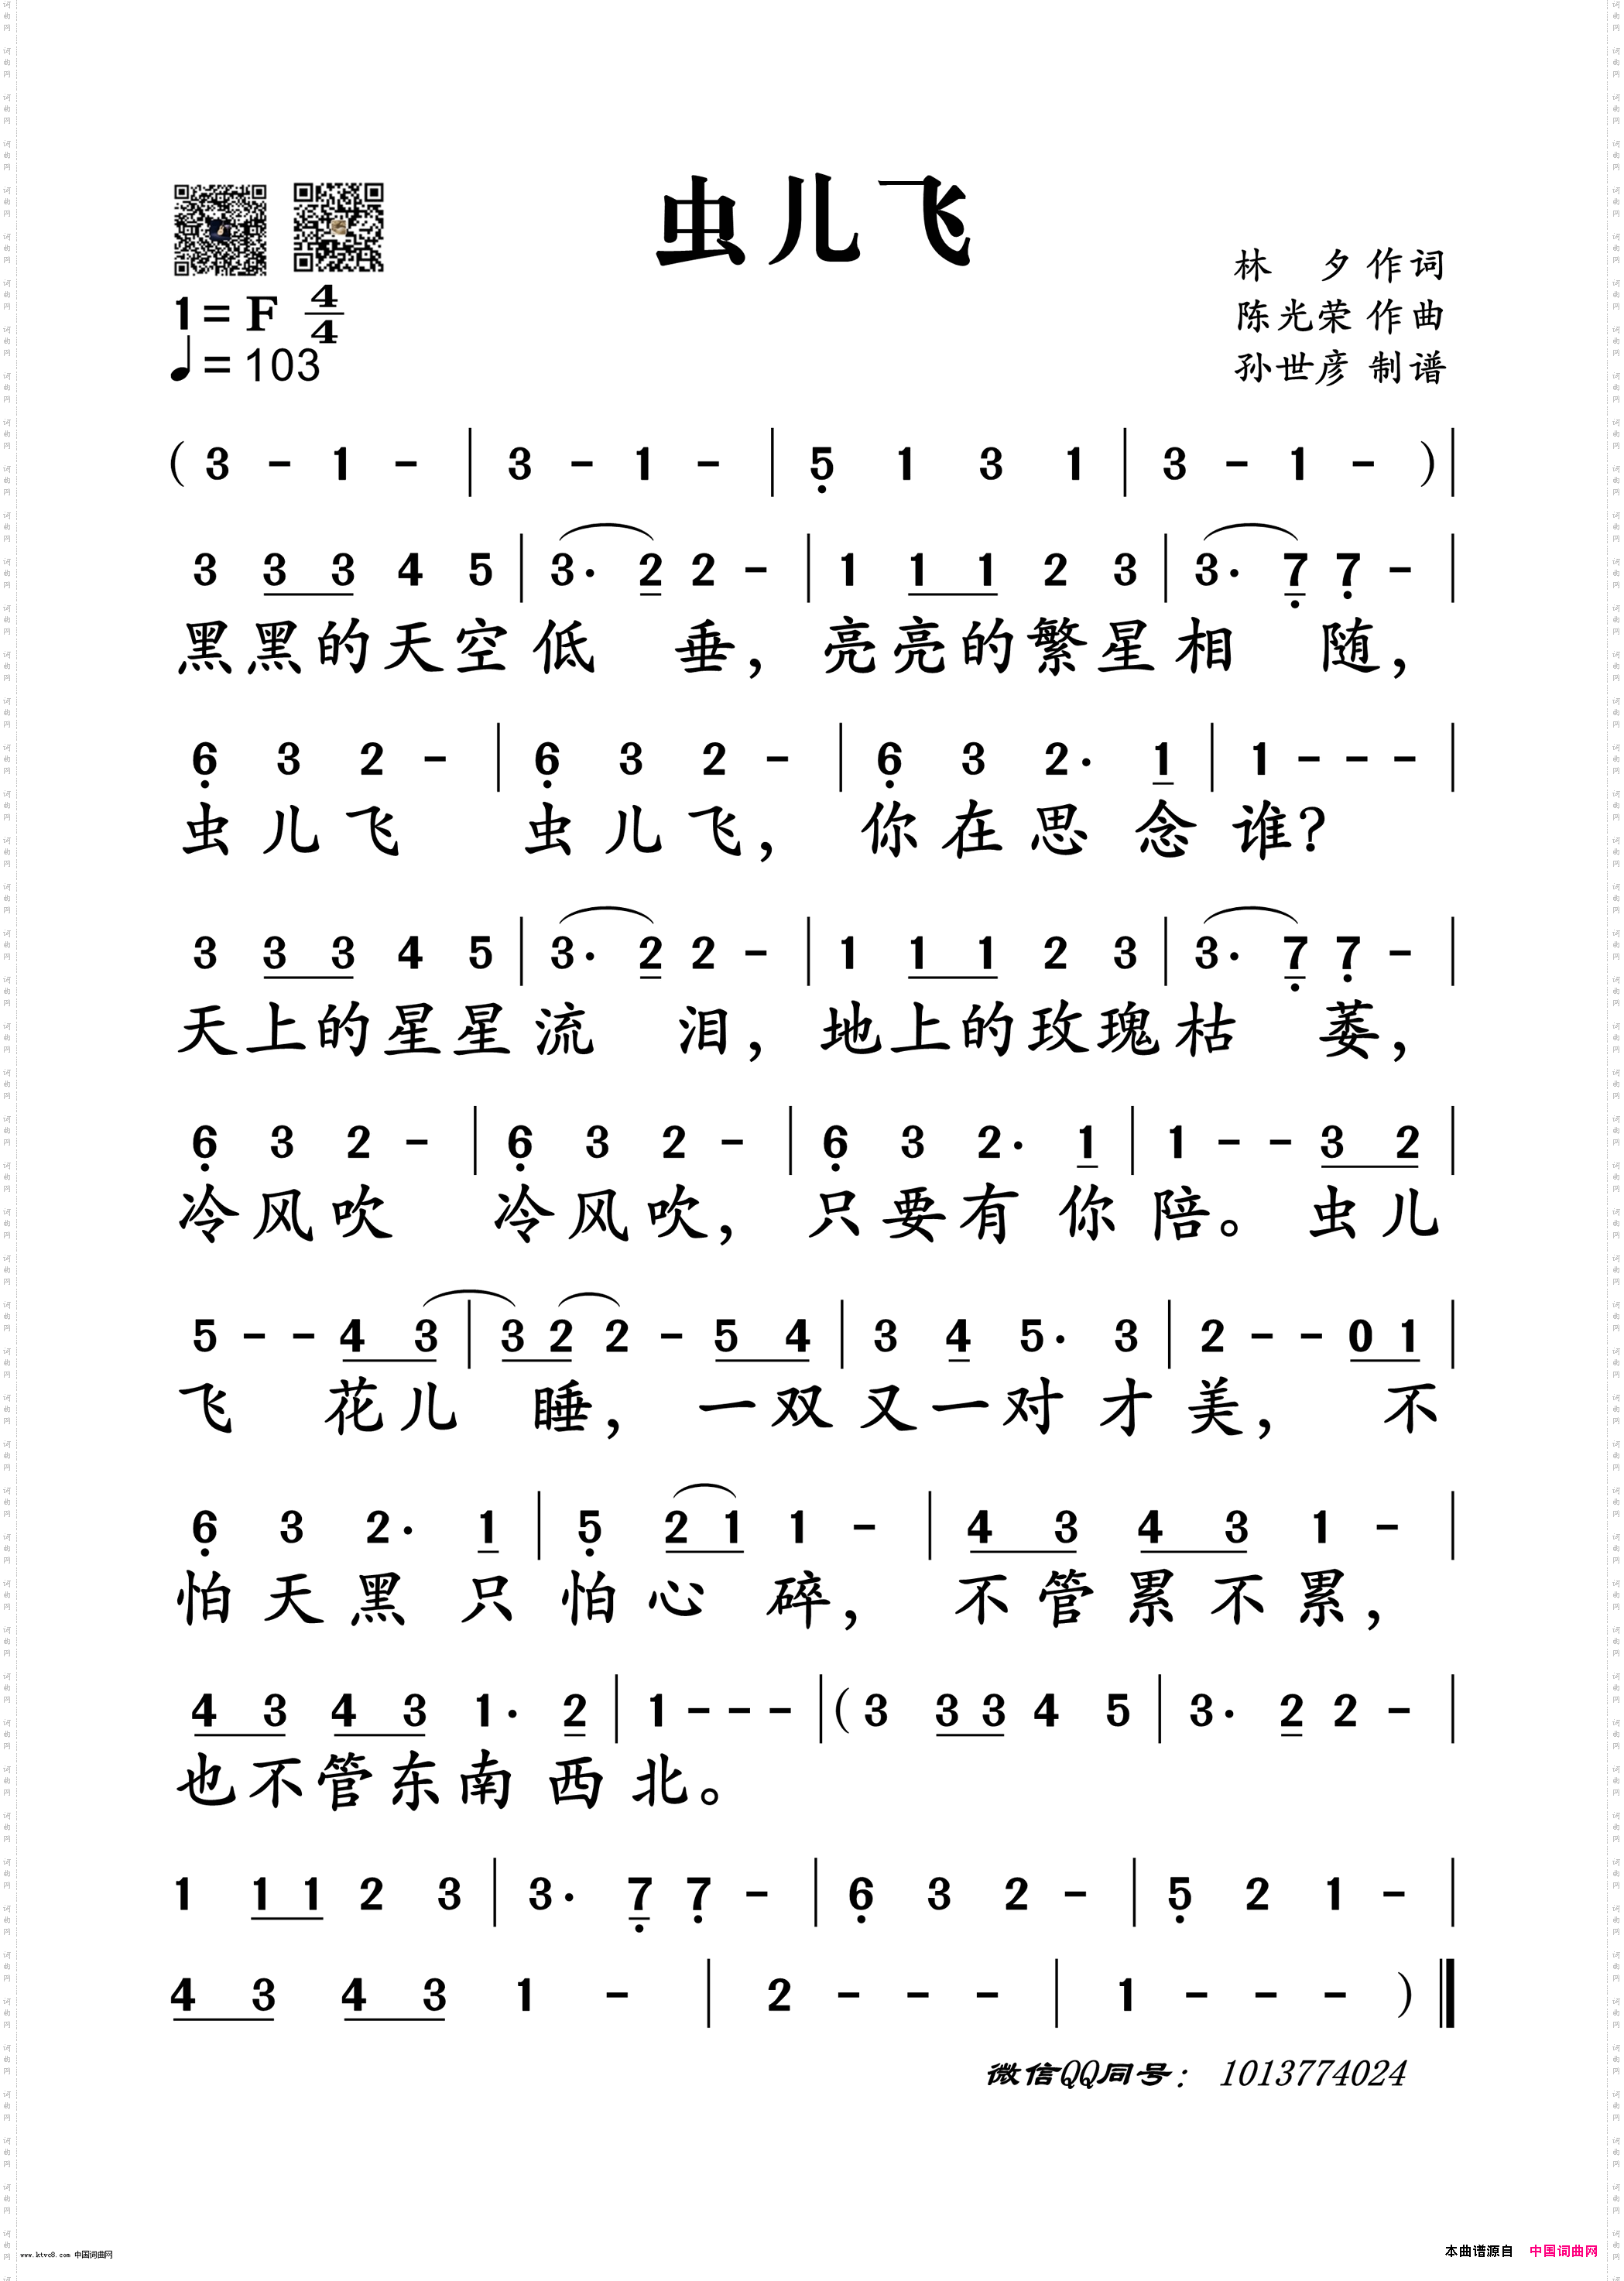 虫儿飞
林 夕 作词
陈光荣 作曲
孙世彦 制谱
1 = F 4/4
♩ = 103
( 3 - 1 - | 3 - 1 - | 5 1 3 1 | 3 - 1 - ) |
3 3 3 4 5 | 3· 2 2 - | 1 1 1 2 3 | 3· 7 7 - |
黑黑的天空低 垂，亮亮的繁星相 随，
6 3 2 - | 6 3 2 - | 6 3 2· 1 | 1 - - - |
虫儿飞 虫儿飞，你在思念谁？
3 3 3 4 5 | 3· 2 2 - | 1 1 1 2 3 | 3· 7 7 - |
天上的星星流 泪，地上的玫瑰枯 萎，
6 3 2 - | 6 3 2 - | 6 3 2· 1 | 1 - - 3 2 |
冷风吹 冷风吹，只要有你陪。虫儿
5 - - 4 3 | 3 2 2 - 5 4 | 3 4 5· 3 | 2 - - 0 1 |
飞 花儿 睡，一双又一对才美，不
6 3 2· 1 | 5 2 1 1 - | 4 3 4 3 1 - |
怕天黑只怕心 碎，不管累不累，
4 3 4 3 1· 2 | 1 - - - | ( 3 3 3 4 5 | 3· 2 2 - |
也不管东南西北。
1 1 1 2 3 | 3· 7 7 - | 6 3 2 - | 5 2 1 - |
4 3 4 3 1 - | 2 - - - | 1 - - - ) ‖
微信QQ同号：1013774024
www.ktvc8.com 中国词曲网
本曲谱源自 中国词曲网